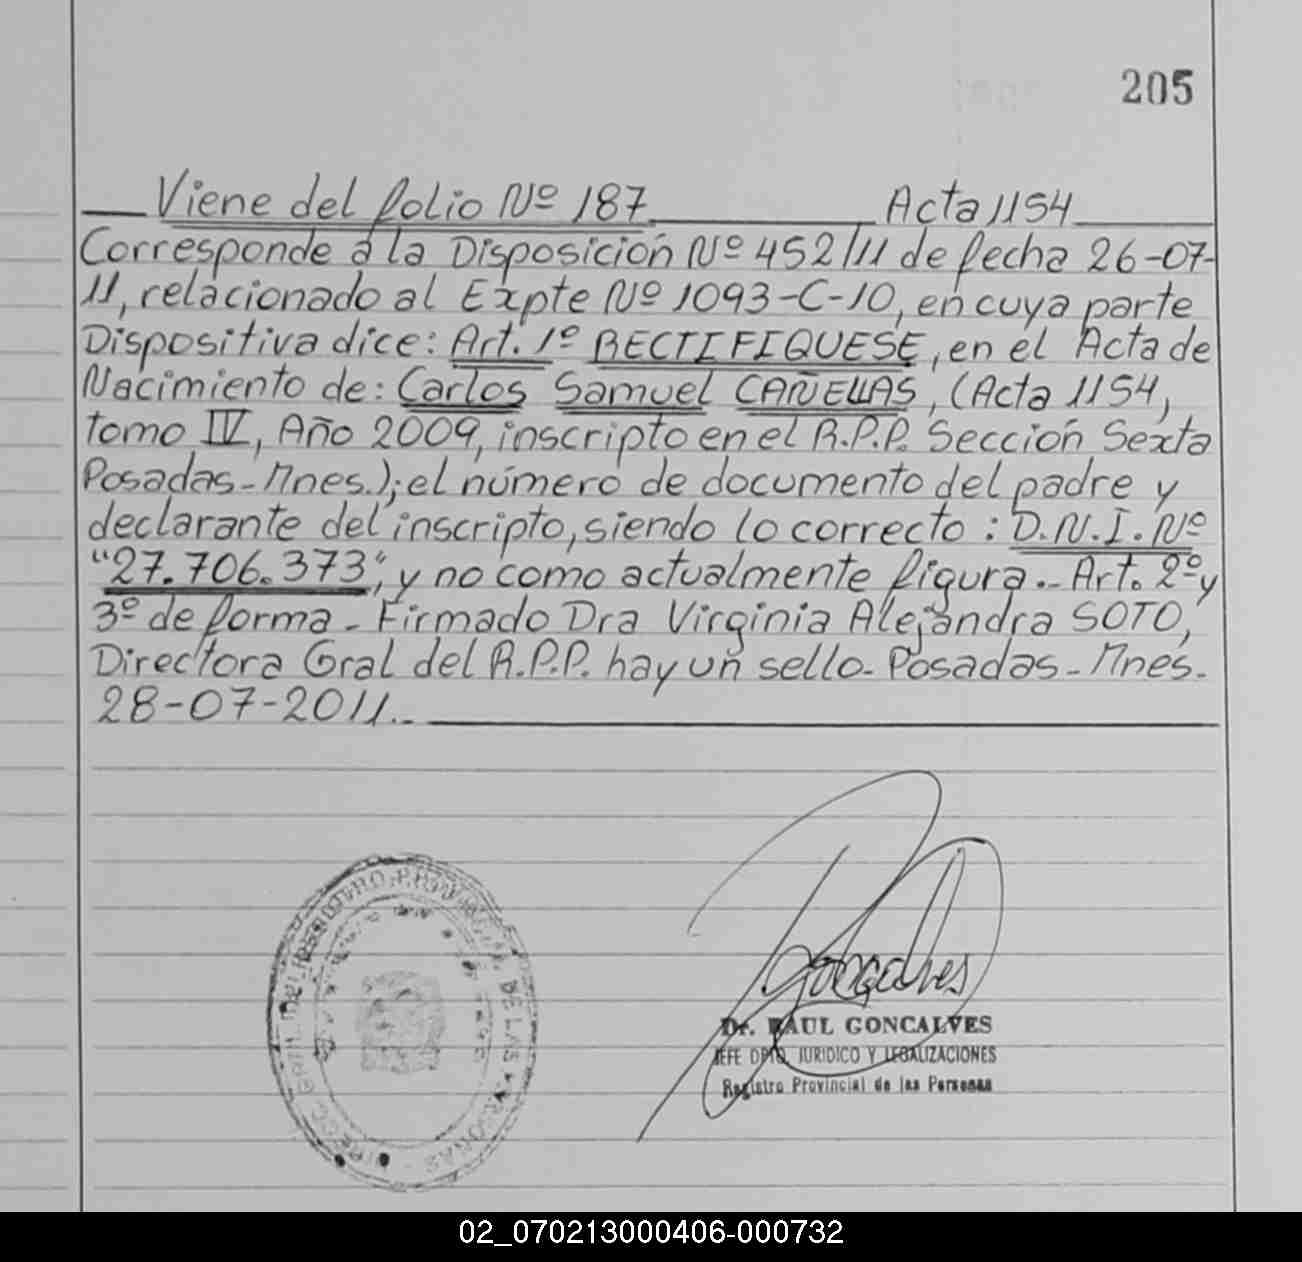 205
Viene del folio Nº 187 Acta 1154
Corresponde a la Disposición Nº 452/11 de fecha 26-07-
11, relacionado al Expte Nº 1093-C-10, en cuya parte
Dispositiva dice: Art. 1º RECTIFIQUESE, en el Acta de
Nacimiento de: Carlos Samuel CAÑELLAS, (Acta 1154,
tomo IV, Año 2009, inscripto en el R.P.P. Sección Sexta
Posadas-Mnes.); el número de documento del padre y
declarante del inscripto, siendo lo correcto: D.N.I. Nº
"27.706.373", y no como actualmente figura.- Art. 2º y
3º de forma - Firmado Dra Virginia Alejandra SOTO,
Directora Gral del R.P.P. hay un sello- Posadas-Mnes-
28-07-2011.-
Goncalves
Dr. RAUL GONCALVES
JEFE DPTO. JURIDICO Y LEGALIZACIONES
Registro Provincial de las Personas
DE LAS
02_070213000406-000732